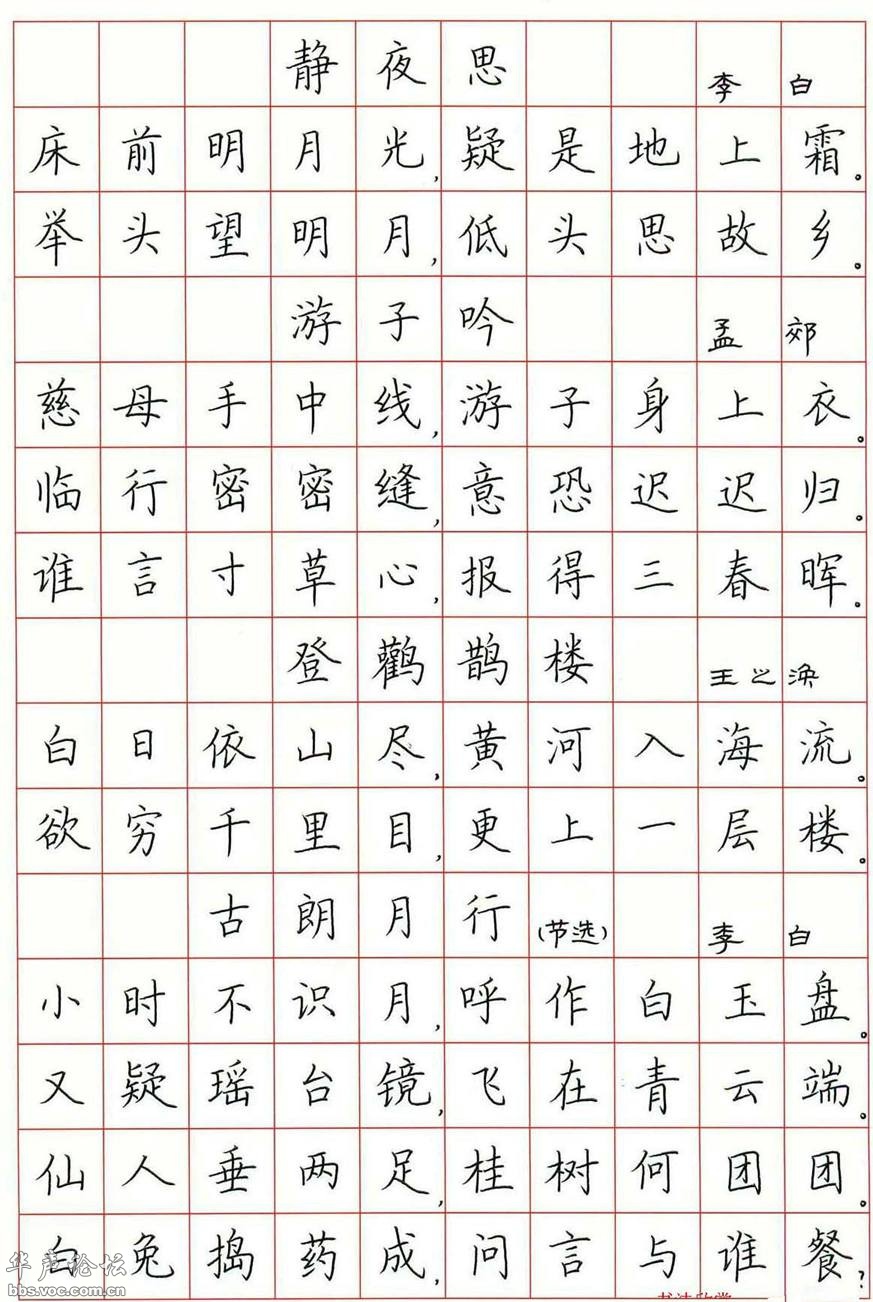 静夜思 李白
床前明月光，疑是地上霜。
举头望明月，低头思故乡。
游子吟 孟郊
慈母手中线，游子身上衣。
临行密密缝，意恐迟迟归。
谁言寸草心，报得三春晖。
登鹳鹊楼 王之涣
白日依山尽，黄河入海流。
欲穷千里目，更上一层楼。
古朗月行(节选) 李白
小时不识月，呼作白玉盘。
又疑瑶台镜，飞在青云端。
仙人垂两足，桂树何团团。
白兔捣药成，问言与谁餐？
华声论坛
bbs.voc.com.cn